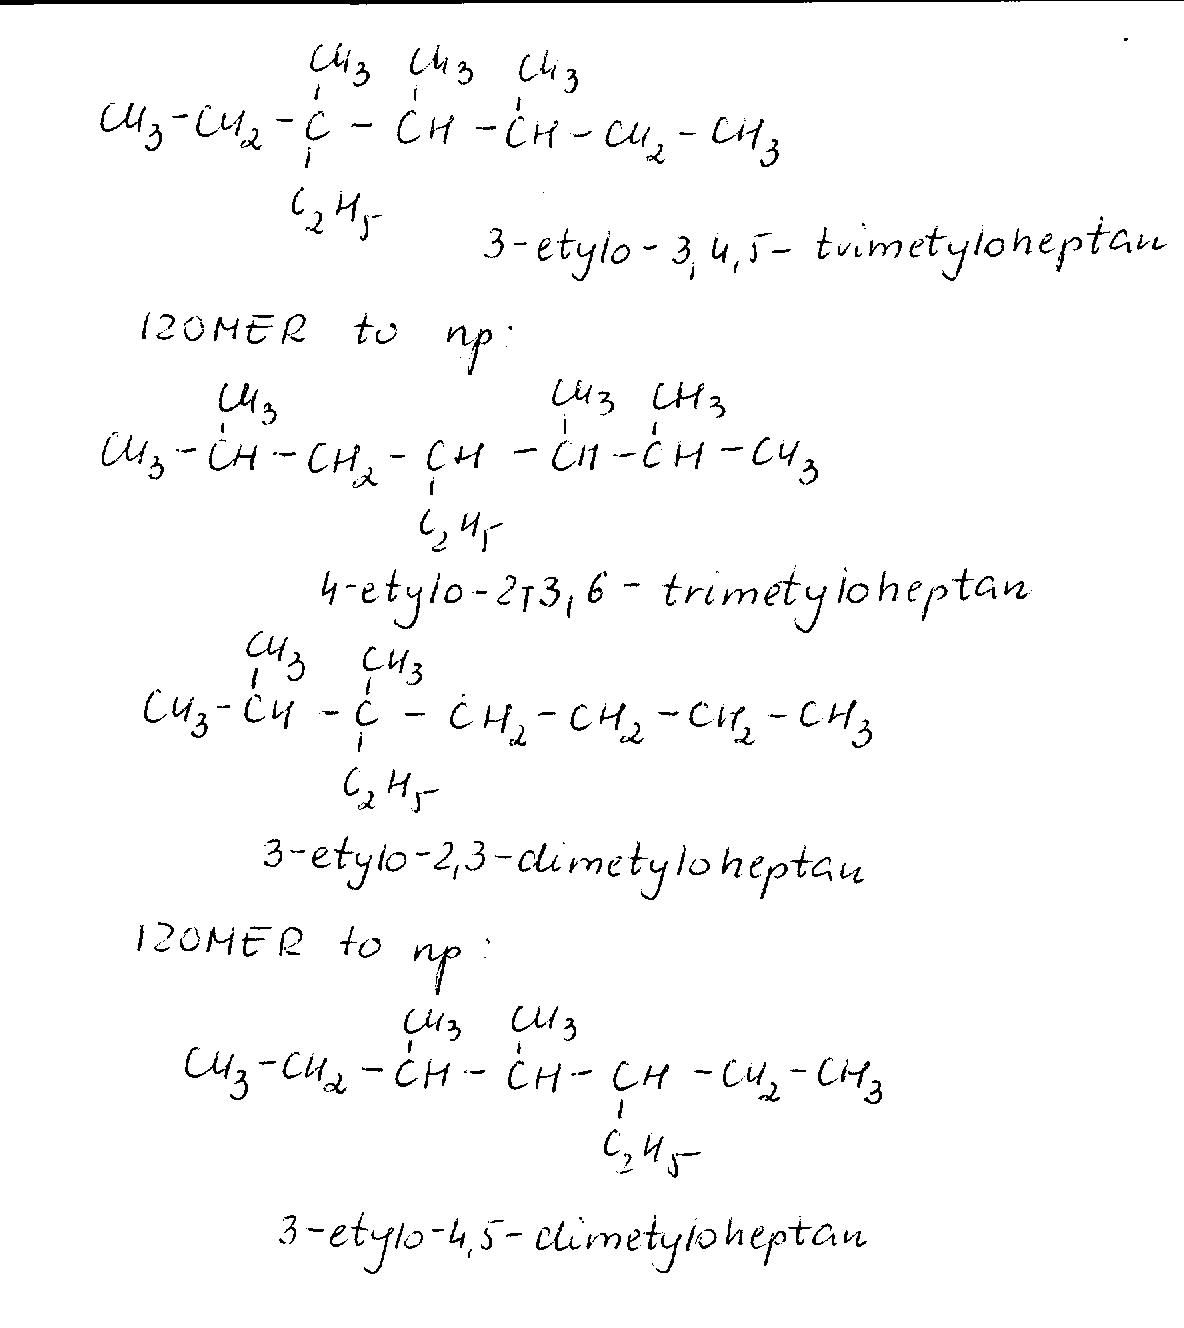 CH3 CH3 CH3
CH3-CH2-C-CH-CH-CH2-CH3
C2H5
3-etylo-3,4,5-trimetyloheptan
IZOMER to np:
CH3 CH3 CH3
CH3-CH-CH2-CH-CH-CH-CH3
C2H5
4-etylo-2,3,6-trimetyloheptan
CH3 CH3
CH3-CH-C-CH2-CH2-CH2-CH3
C2H5
3-etylo-2,3-dimetyloheptan
IZOMER to np:
CH3 CH3
CH3-CH2-CH-CH-CH-CH2-CH3
C2H5
3-etylo-4,5-dimetyloheptan